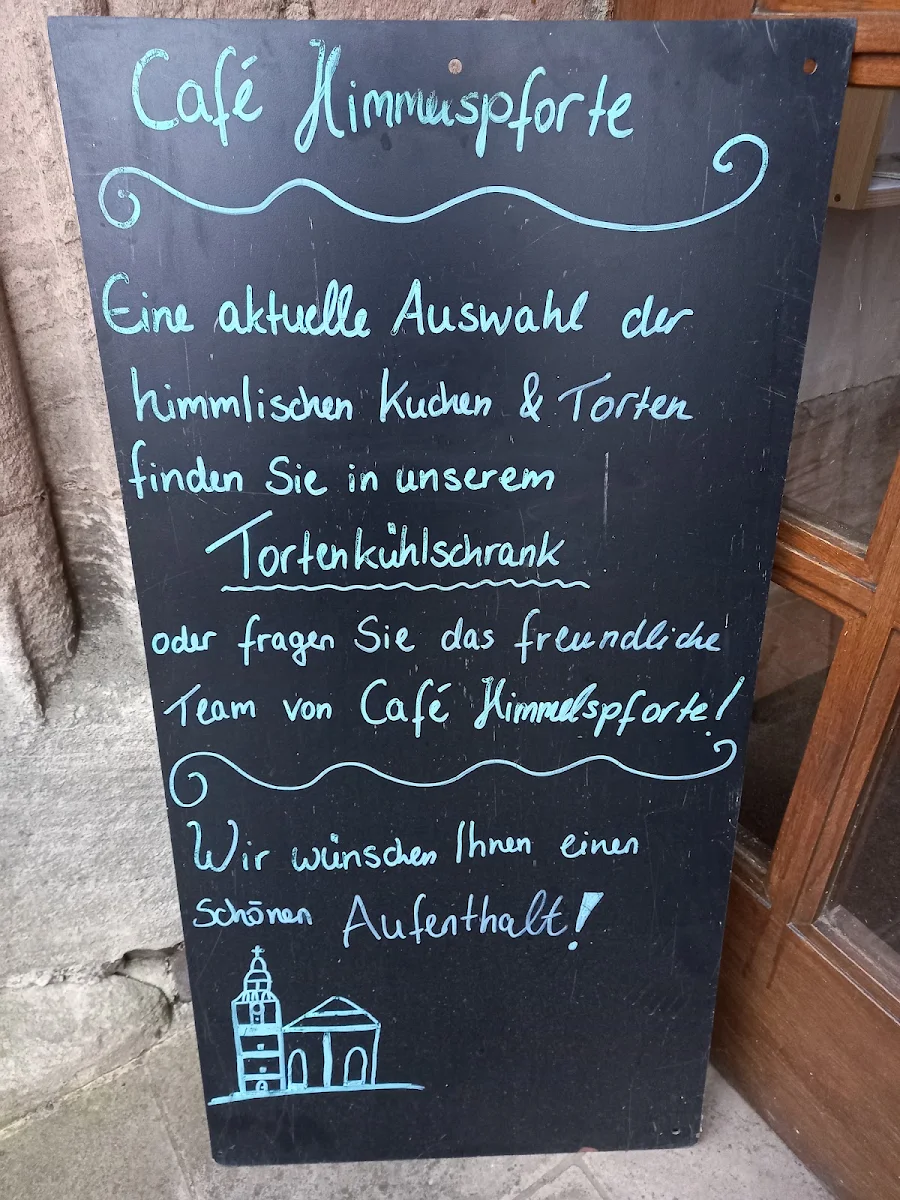 Café Himmelspforte
Eine aktuelle Auswahl der
himmlischen Kuchen & Torten
finden Sie in unserem
Tortenkühlschrank
oder fragen Sie das freundliche
Team von Café Himmelspforte!
Wir wünschen Ihnen einen
schönen Aufenthalt!